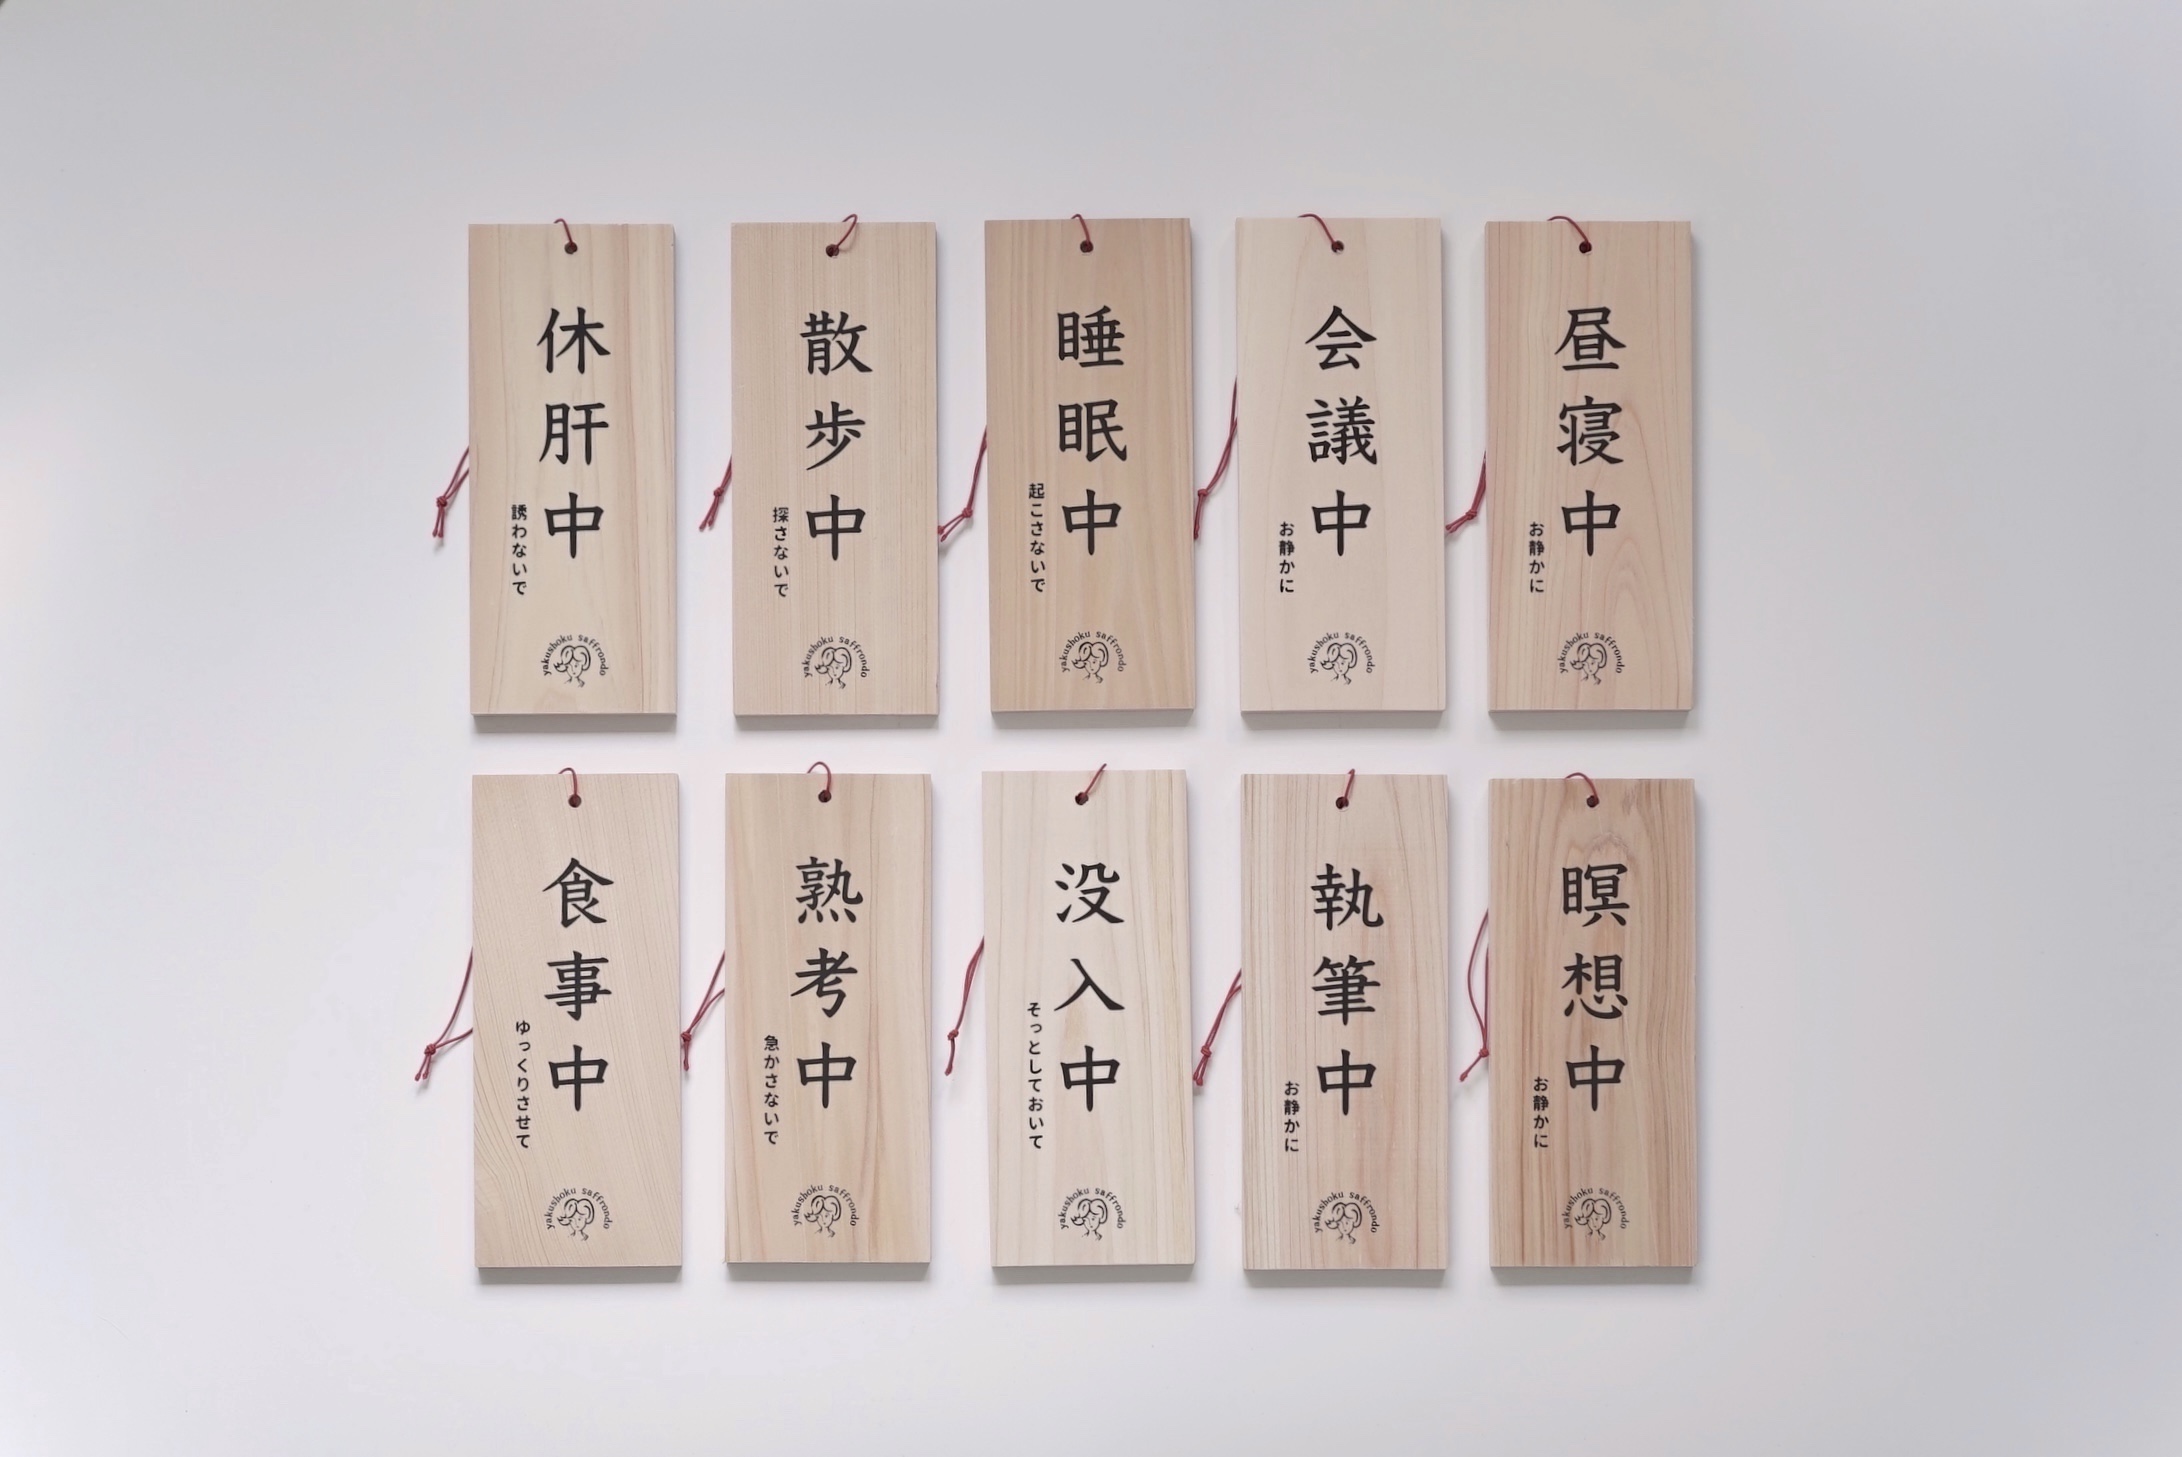 休肝中
誘わないで
yakushoku saffrondo
散歩中
探さないで
yakushoku saffrondo
睡眠中
起こさないで
yakushoku saffrondo
会議中
お静かに
yakushoku saffrondo
昼寝中
お静かに
yakushoku saffrondo
食事中
ゆっくりさせて
yakushoku saffrondo
熟考中
急かさないで
yakushoku saffrondo
没入中
そっとしておいて
yakushoku saffrondo
執筆中
お静かに
yakushoku saffrondo
瞑想中
お静かに
yakushoku saffrondo